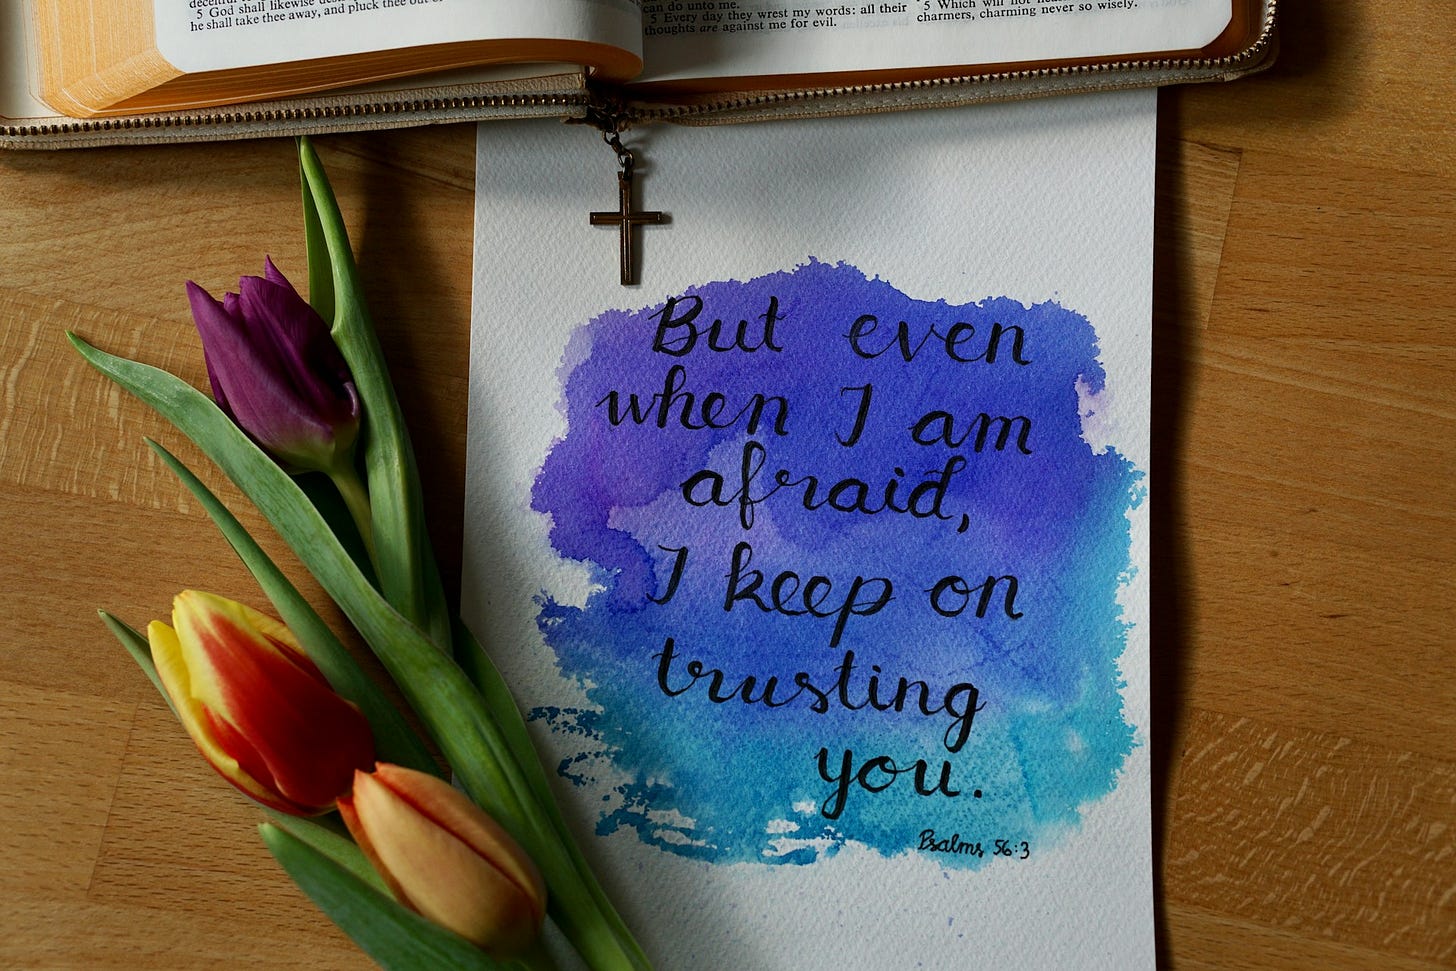 5 God shall likewise
he shall take thee away, and pluck thee out of
can do unto me.
5 Every day they wrest my words: all their
thoughts are against me for evil.
5 Which will not
charmers, charming never so wisely.
But even
when I am
afraid,
I keep on
trusting
you.
Psalms 56:3